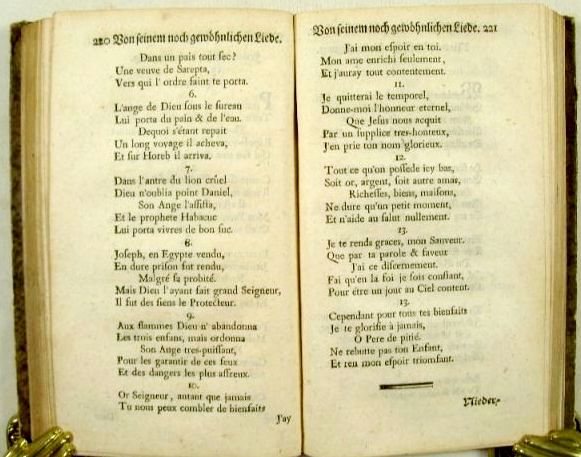 220 Von seinem noch gewöhnlichen Liede.
Dans un païs tout sec?
Une veuve de Sarepta,
Vers qui l'ordre saint te porta.
6.
L'ange de Dieu sous le sureau
Lui porta du pain & de l'eau.
Dequoi s'étant repait
Un long voyage il acheva,
Et sur Horeb il arriva.
7.
Dans l'antre du lion crüel
Dieu n'oublia point Daniel,
Son Ange l'assista,
Et le prophete Habacuc
Lui porta vivres de bon suc.
8.
Joseph, en Egypte vendu,
En dure prison fut rendu,
Malgré sa probité.
Mais Dieu l'ayant fait grand Seigneur,
Il fut des siens le Protecteur.
9.
Aux flammes Dieu n'abandonna
Les trois enfans, mais ordonna
Son Ange tres-puissant,
Pour les garantir de ces feux
Et des dangers les plus affreux.
10.
Or Seigneur, autant que jamais
Tu nous peux combler de bienfaits
J'ay
Von seinem noch gewöhnlichen Liede. 221
J'ai mon espoir en toi.
Mon ame enrichi seulement,
Et j'auray tout contentement.
11.
Je quitterai le temporel,
Donne-moi l'honneur eternel,
Que Jesus nous acquit
Par un supplice tres-honteux,
J'en prie ton nom glorieux.
12.
Tout ce qu'on possede icy bas,
Soit or, argent, soit autre amas,
Richesses, biens, maisons,
Ne dure qu'un petit moment,
Et n'aide au salut nullement.
13.
Je te rends graces, mon Sauveur.
Que par ta parole & faveur
J'ai ce discernement.
Fai qu'en la foi je sois constant,
Pour être un jour au Ciel content.
13.
Cependant pour tous tes bienfaits
Je te glorifie à jamais,
O Pere de pitié.
Ne rebutte pas ton Enfant,
Et ren mon espoir triomfant.
Nieder-